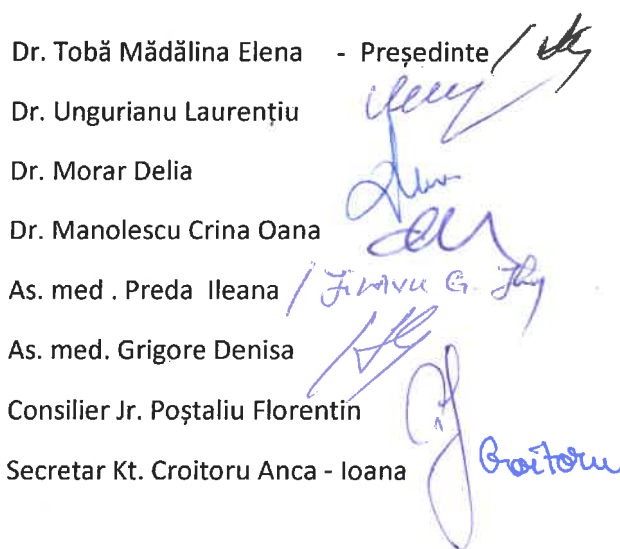 Dr. Tobă Mădălina Elena - Președinte /
Dr. Ungurianu Laurențiu
Dr. Morar Delia
Dr. Manolescu Crina Oana
As. med . Preda Ileana / G.
As. med. Grigore Denisa /
Consilier Jr. Poștaliu Florentin
Secretar Kt. Croitoru Anca - Ioana Croitoru